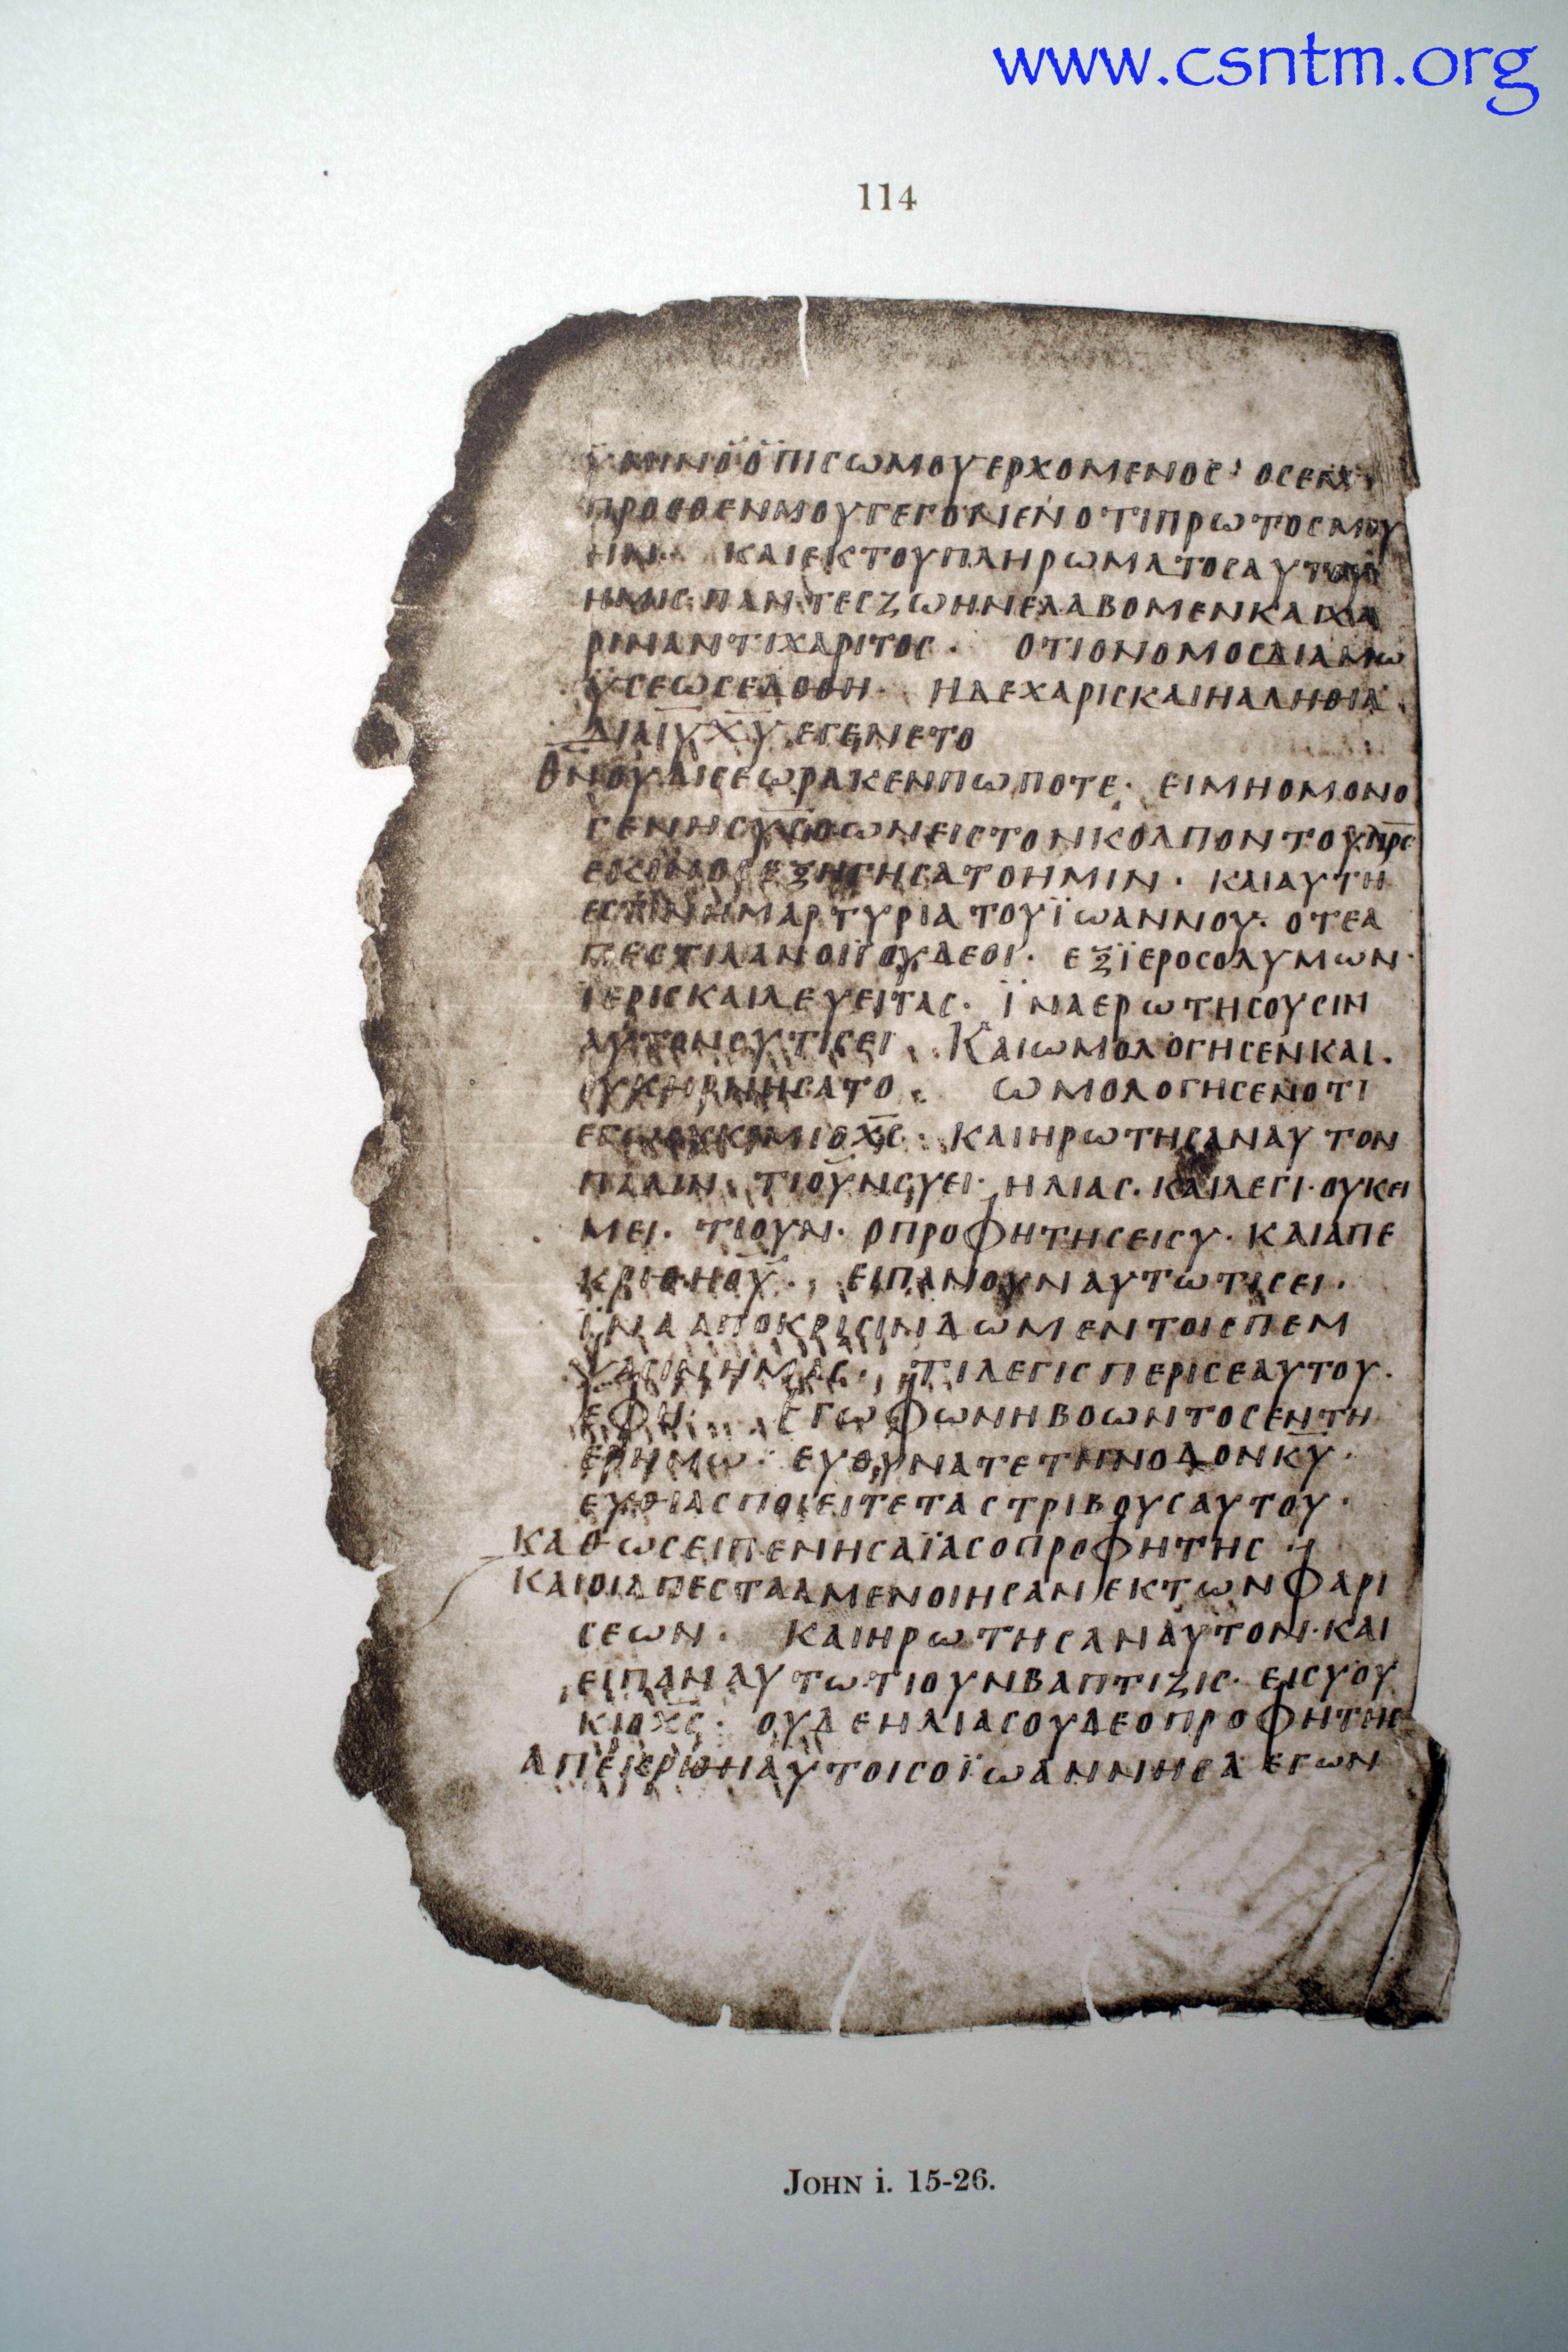 www.csntm.org
114
ϋμιν ο οπισω μου ερχομενος· ος εν
προσθεν μου γεγονεν οτι πρωτος μου
ην· και εκ του πληρωματος αυτου
ημις παντες ζωην ελαβομεν και χα
ριν αντι χαριτος· οτι ο νομος δια μω
ϋσεως εδοθη· η δε χαρις και η αληθια
δια ι̅υ̅ χ̅υ̅ εγενετο
θ̅ν̅ ουδις εωρακεν πωποτε· ει μη ο μονο
γενης υ̅ς̅ ο ων εις τον κολπον του π̅ρ̅ς̅
εκεινος εξηγησατο ημιν· και αυτη
εστιν η μαρτυρια του ϊωαννου· οτε α
πεστιλαν οι ϊουδεοι· εξ ϊεροσολυμων·
ϊερις και λευειτας· ϊνα ερωτησουσιν
αυτον συ τις ει· Και ωμολογησεν και·
ουκ ηρνησατο· ωμολογησεν οτι
εγω ουκ ημι ο χ̅ς̅· και ηρωτησαν αυτον
παλιν· τι ουν συ ει· ηλιας· και λεγι· ουκ ει
μει· τι ουν· ο προφητης ει συ· και απε
κριθη ου· ειπαν ουν αυτω τις ει·
ϊνα αποκρισιν δωμεν τοις πεμ
ψασιν ημας· τι λεγις περι σεαυτου·
εφη· εγω φωνη βοωντος εν τη
ερημω· ευθυνατε την οδον κ̅υ̅·
ευθιας ποιειτε τας τριβους αυτου·
καθως ειπεν ησαϊας ο προφητης
και οι απεσταλμενοι ησαν εκ των φαρι
σεων· και ηρωτησαν αυτον· και
ειπαν αυτω τι ουν βαπτιζις· ει συ ου
κ ι ο χ̅ς̅· ουδε ηλιας ουδε ο προφητης
απεκριθη αυτοις ο ϊωαννης εγω
John i. 15-26.